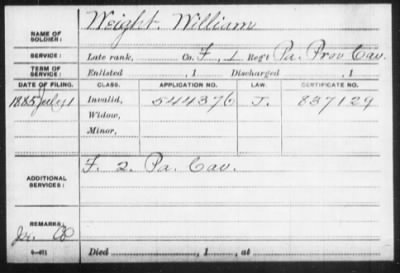 NAME OF SOLDIER: Weight, William
SERVICE: Late rank, Co. F, 1 Reg't Pa. Prov Cav.
TERM OF SERVICE: Enlisted , 1 Discharged , 1
DATE OF FILING. CLASS. APPLICATION NO. LAW. CERTIFICATE NO.
1885 July 1 Invalid, 544376 J. 837129
Widow,
Minor,
ADDITIONAL SERVICES: F. 2. Pa. Cav.
REMARKS:
Died , 1 , at